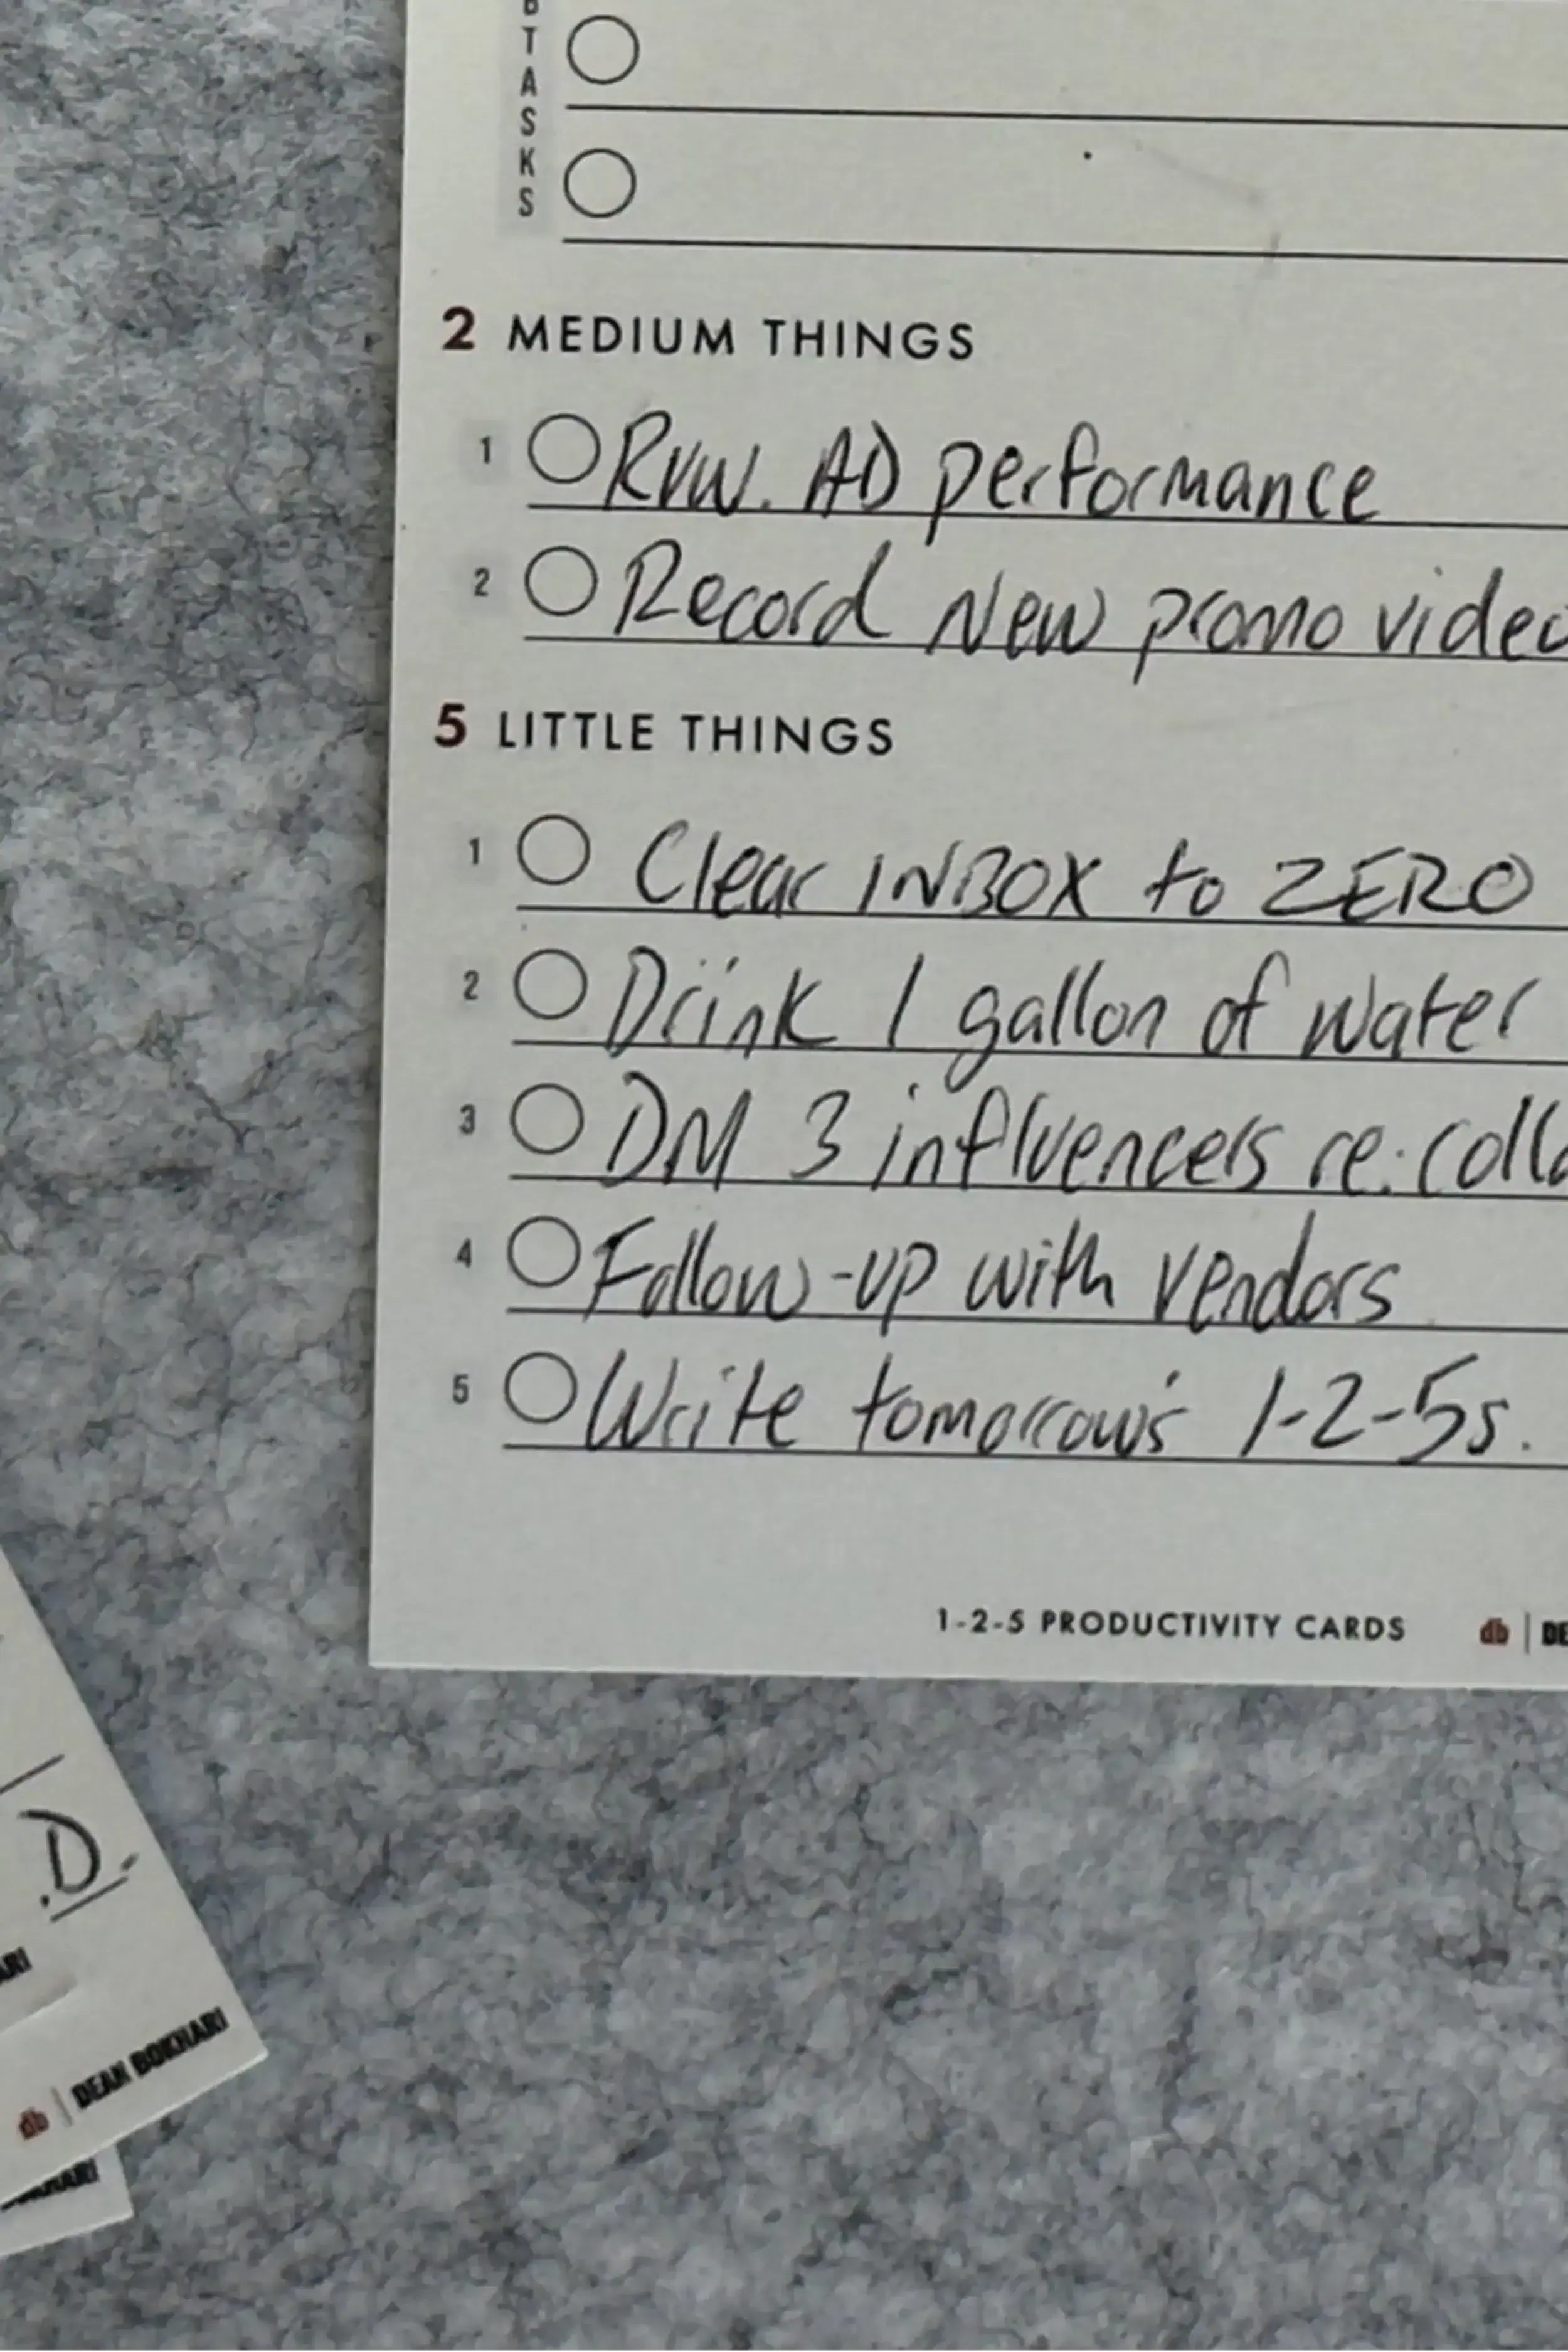 BTASKS
2 MEDIUM THINGS
1 Rvw. AD performance
2 Record New promo video
5 LITTLE THINGS
1 Clear INBOX to ZERO
2 Drink 1 gallon of water
3 DM 3 influencers re: colla
4 Follow-up with vendors
5 Write tomorrow's 1-2-5s.
1-2-5 PRODUCTIVITY CARDS db | DE
.D.
ARI
db | DEAN BOKHARI
KHARI